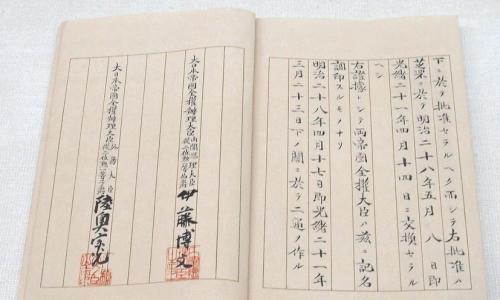 下ニ於テ批准セラルヘク而シテ右批准ハ
芝罘ニ於テ明治二十八年五月八日即
光緒二十一年四月十四日ニ交換セラル
ヘシ
右證據トシテ兩帝國全權大臣ハ茲ニ記名
調印スルモノナリ
明治二十八年四月十七日即光緒二十一年
三月二十三日下ノ關ニ於テ二通ヲ作ル
大日本帝國全權辦理大臣內閣總理大臣從二位勳一等伯爵伊藤博文
大日本帝國全權辦理大臣外務大臣從二位勳一等子爵陸奧宗光